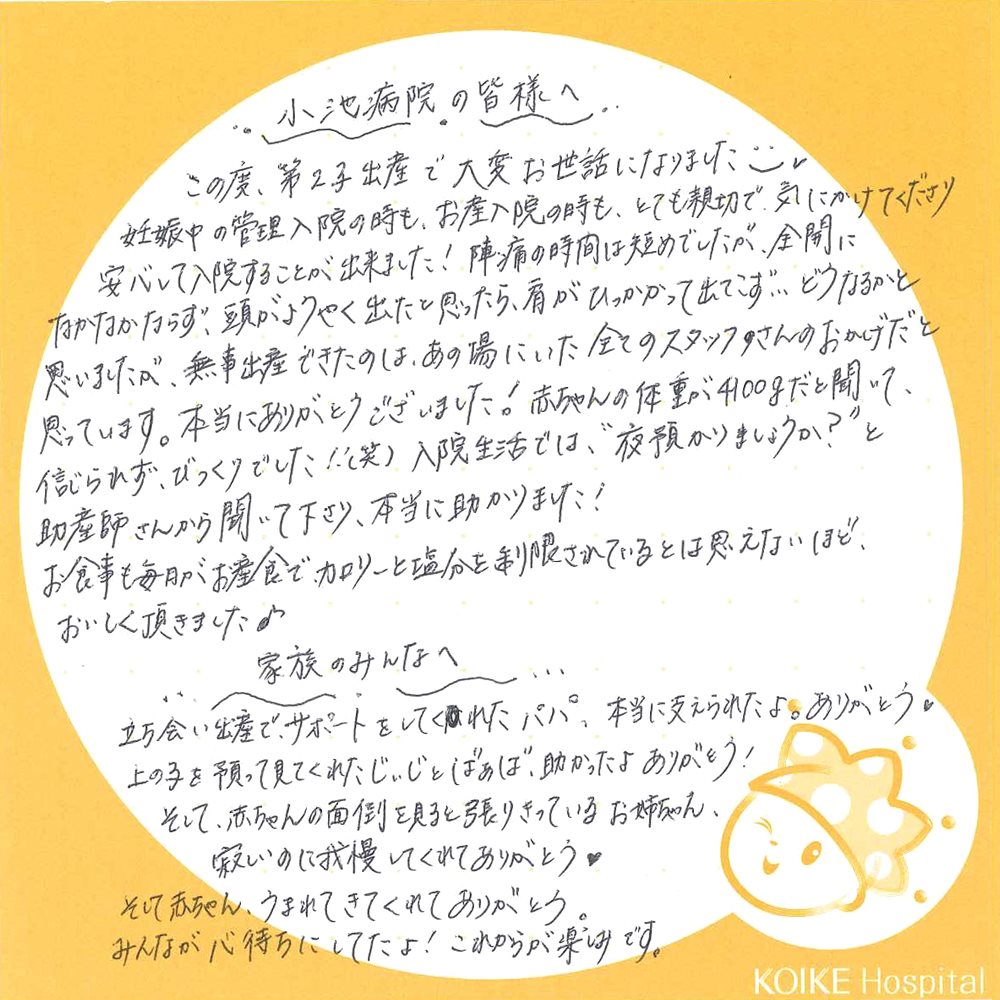 小池病院の皆様へ
この度、第2子出産で大変お世話になりました
妊娠中の管理入院の時も、お産入院の時も、とても親切で、気にかけてくださり
安心して入院することが出来ました!陣痛の時間は短めでしたが、全開に
なかなかならず、頭がようやく出たと思ったら、肩がひっかかって出てこず…どうなるかと
思いましたが、無事出産できたのは、あの場にいた全てのスタッフさんのおかげだと
思っています。本当にありがとうございました!赤ちゃんの体重が4100gだと聞いて、
信じられず、びっくりでした!!(笑)入院生活では、“夜預かりましょうか?”と
助産師さんから聞いて下さり、本当に助かりました!
お食事も毎日がお産食でカロリーと塩分を制限されているとは思えないほど、
おいしく頂きました♪
家族のみんなへ
立ち会い出産で、サポートをしてくれたパパ、本当に支えられたよ。ありがとう♥
上の子を預って見てくれたじぃじとばぁば、助かったよありがとう!
そして、赤ちゃんの面倒を見ると張りきっているお姉ちゃん、
寂しいのに我慢してくれてありがとう♥
そして赤ちゃん、うまれてきてくれてありがとう。
みんなが心待ちにしてたよ!これからが楽しみです。
KOIKE Hospital